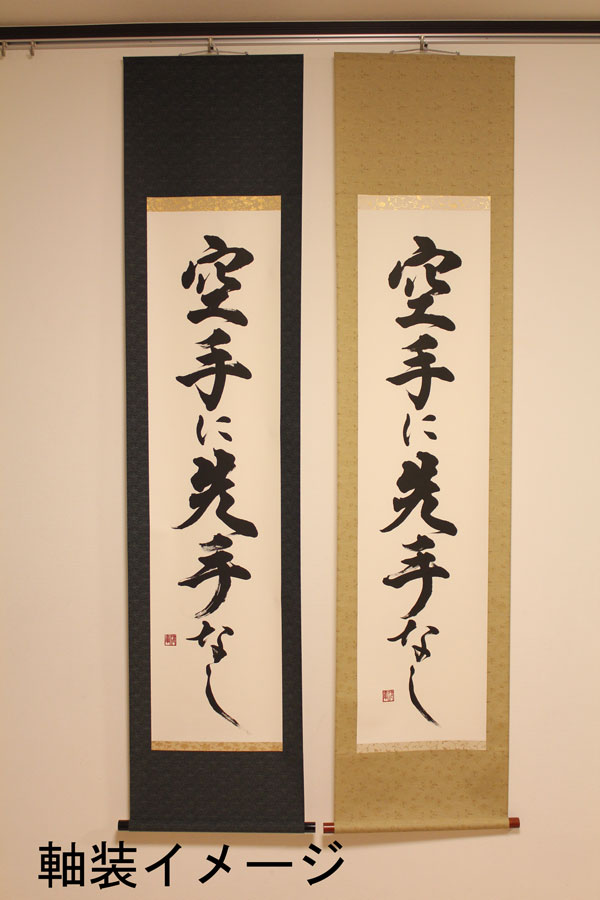 空手に先手なし
空手に先手なし
軸装イメージ